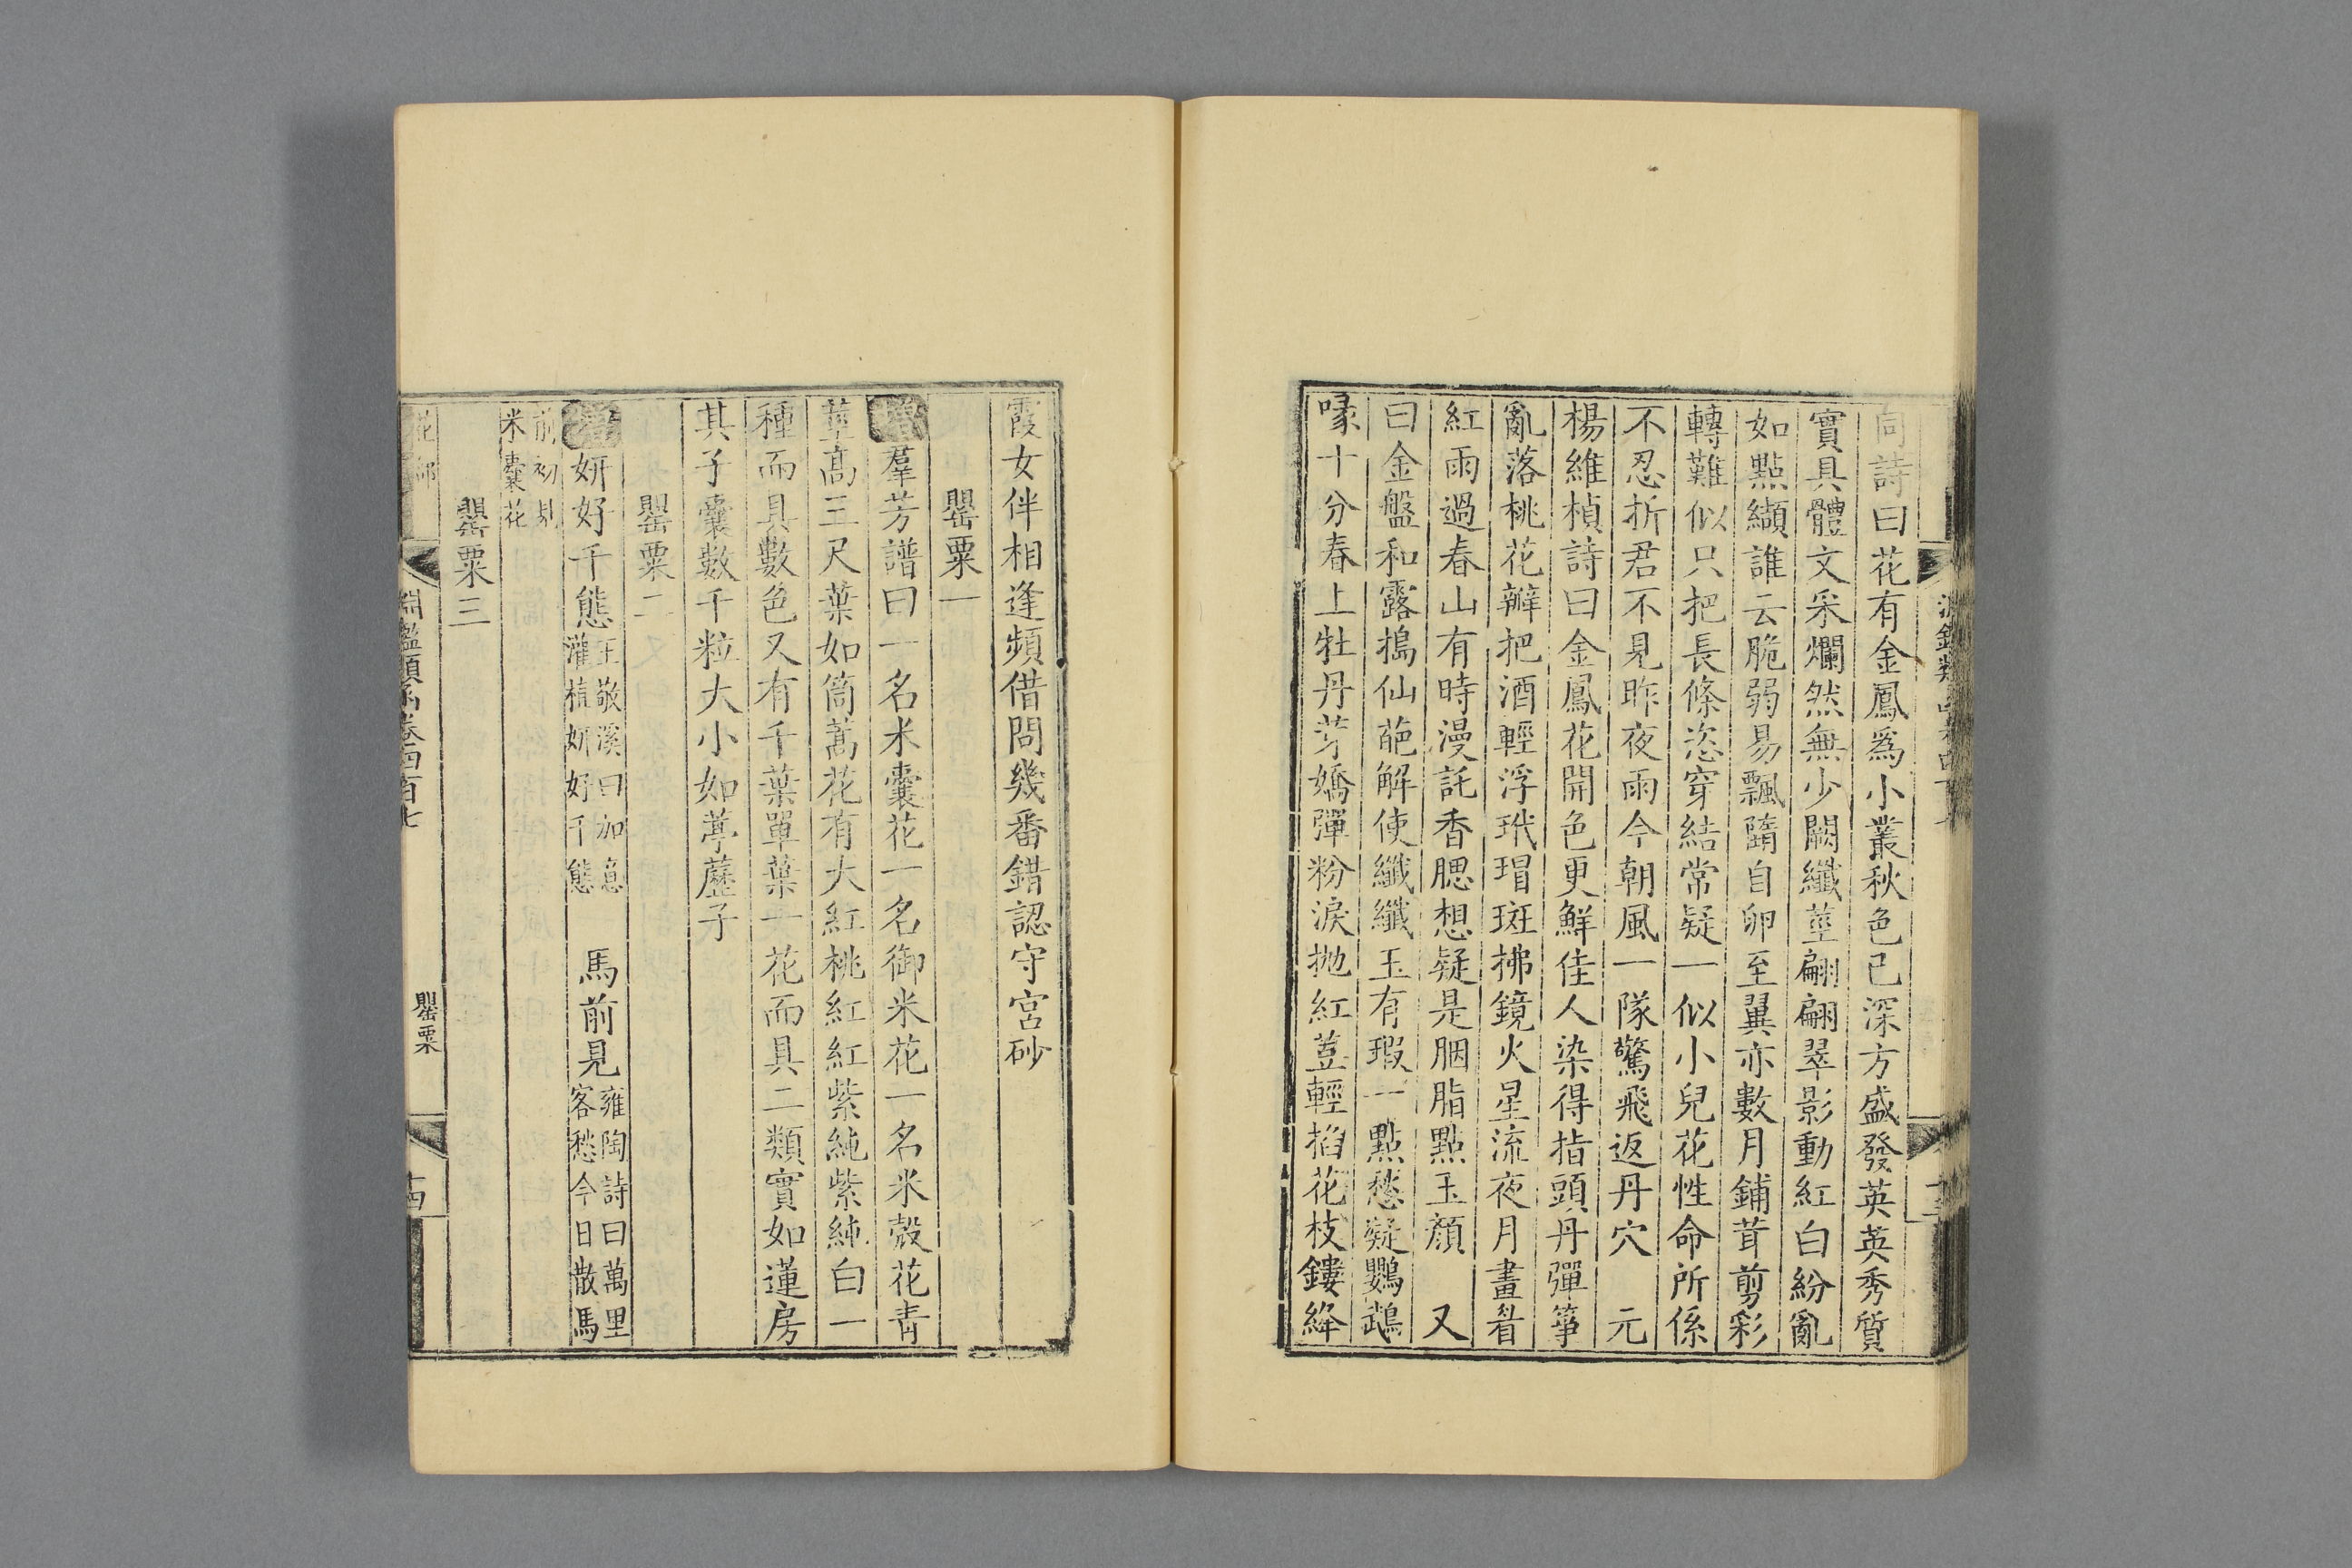 同詩曰花有金鳳為小叢秋色已深方盛發英英秀質
實具體文采爛然無少闕纖莖翩翩翠影動紅白紛亂
如點纈誰云脆弱易飄隨自卵至翼亦數月鋪茸剪彩
轉難似只把長條恣穿結常疑一似小兒花性命所係
不忍折君不見昨夜雨今朝風一隊驚飛返丹穴 元
楊維楨詩曰金鳳花開色更鮮佳人染得指頭丹彈箏
亂落桃花瓣把酒輕浮玳瑁斑拂鏡火星流夜月畫眉
紅雨過春山有時漫託香腮想疑是胭脂點玉顏 又
曰金盤和露搗仙葩解使纖纖玉有瑕一點愁疑鸚鵡
喙十分春上牡丹芽嬌彈粉淚拋紅荳輕掐花枝鏤絳
霞女伴相逢頻借問幾番錯認守宮砂
罌粟一
增羣芳譜曰一名米囊花一名御米花一名米殼花青
莖高三尺葉如茼蒿花有大紅桃紅紅紫純紫純白一
種而具數色又有千葉單葉一花而具二類實如蓮房
其子囊數千粒大小如葶藶子
罌粟二
增妍好千態王敬溪曰加意灌植妍好千態 馬前見雍陶詩曰萬里客愁今日散馬
前初見米囊花
罌粟三
花部
淵鑑類函卷四百七
罌粟
十四